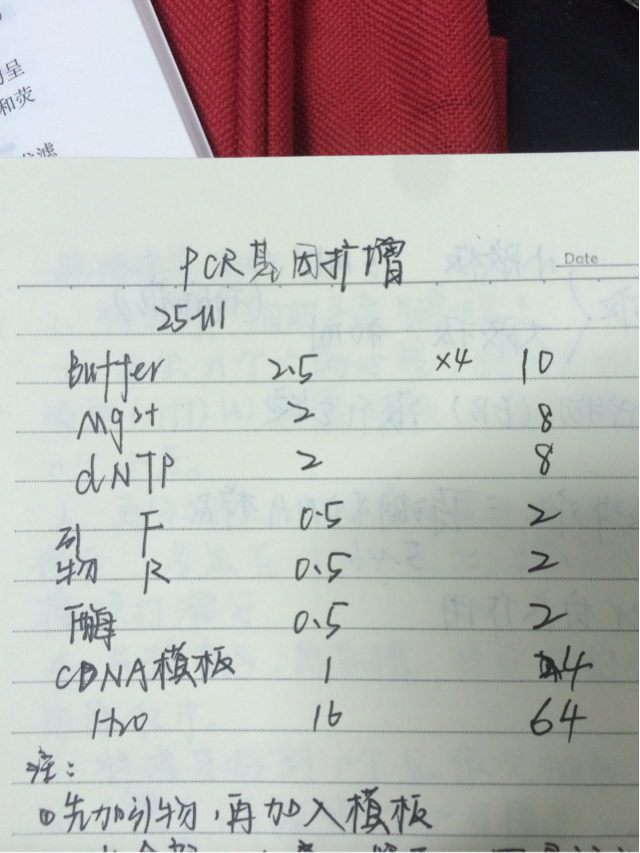 呈
和荧
滤
PCR基因扩增
Date
25μl
Buffer 2.5 ×4 10
Mg2+ 2 8
dNTP 2 8
引 F 0.5 2
物 R 0.5 2
酶 0.5 2
cDNA模板 1 4
H2O 16 64
注:
①先加引物,再加入模板